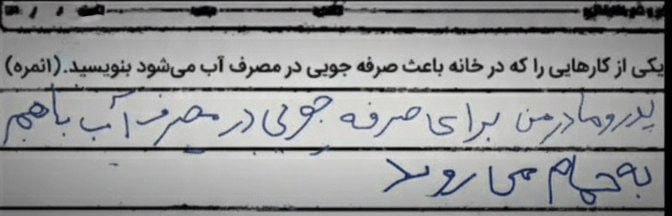 یکی از کارهایی را که در خانه باعث صرفه جویی در مصرف آب می‌شود بنویسید. (۱نمره)
پدر و مادر من برای صرفه جویی در مصرف آب باهم
به حمام می روند